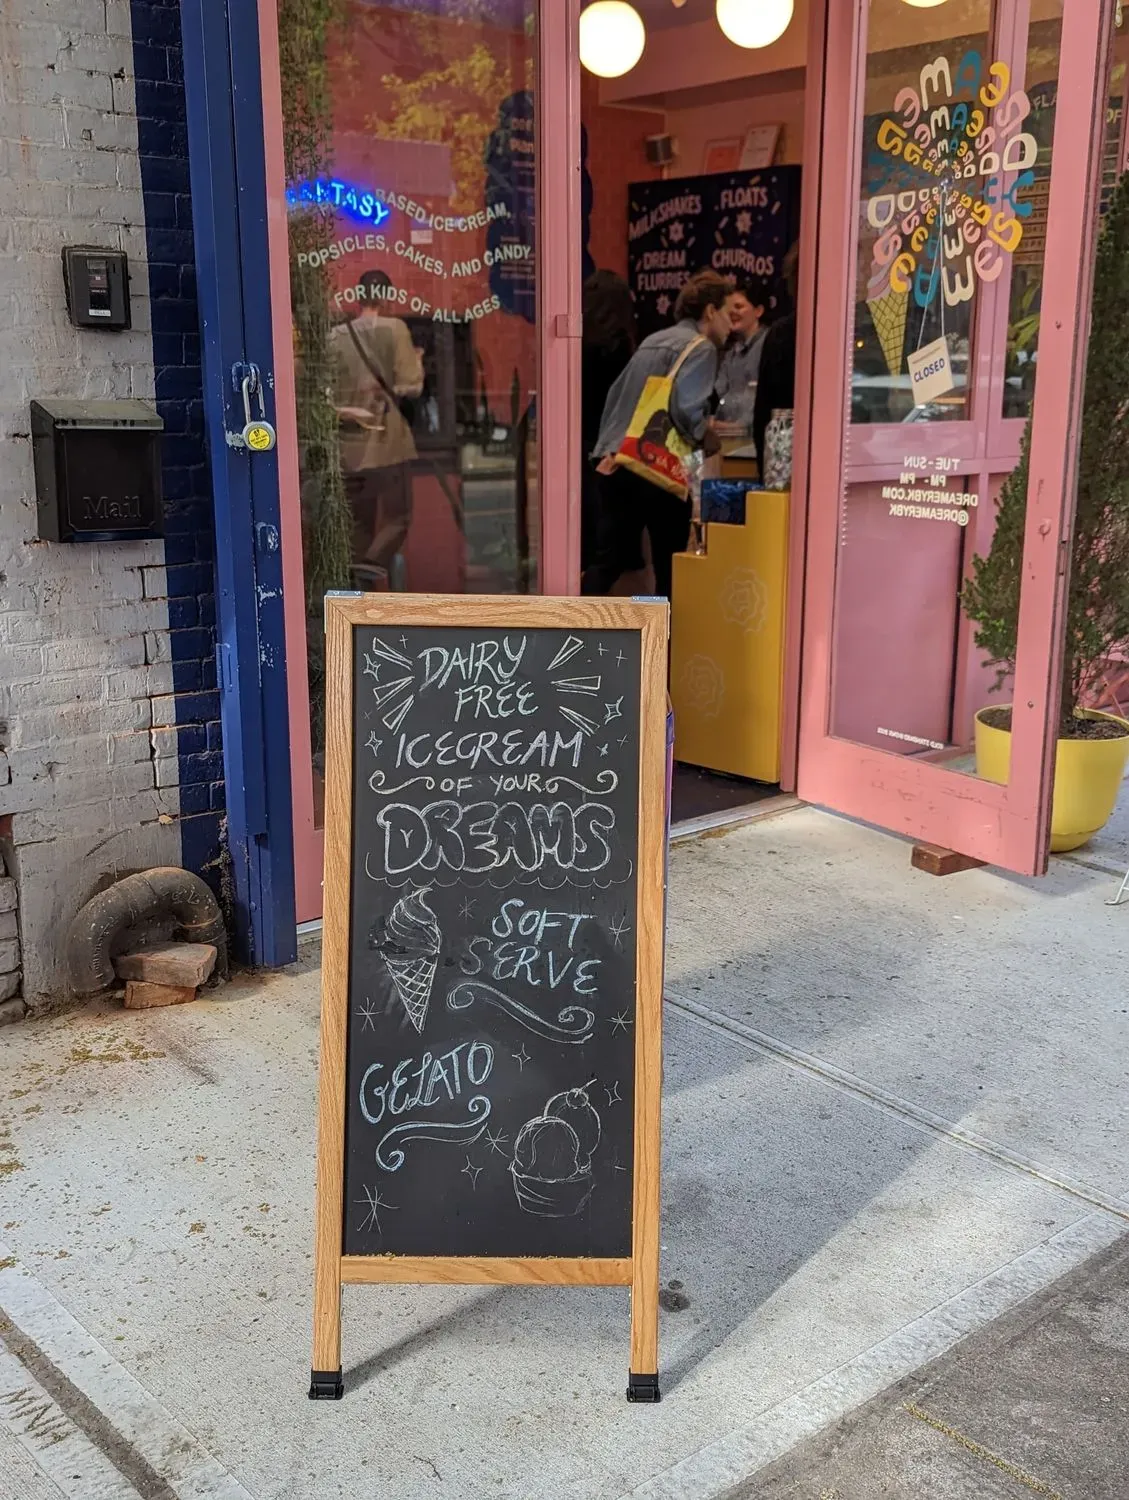 FANTASY
BASED ICE CREAM,
POPSICLES, CAKES, AND CANDY
FOR KIDS OF ALL AGES
MILKSHAKES
FLOATS
DREAM
FLURRIES
CHURROS
CLOSED
TUE-SUN
PM - PM
DREAMERYBK.COM
@DREAMERYBK
Mail
DAIRY
FREE
ICECREAM
OF YOUR
DREAMS
SOFT
SERVE
GELATO